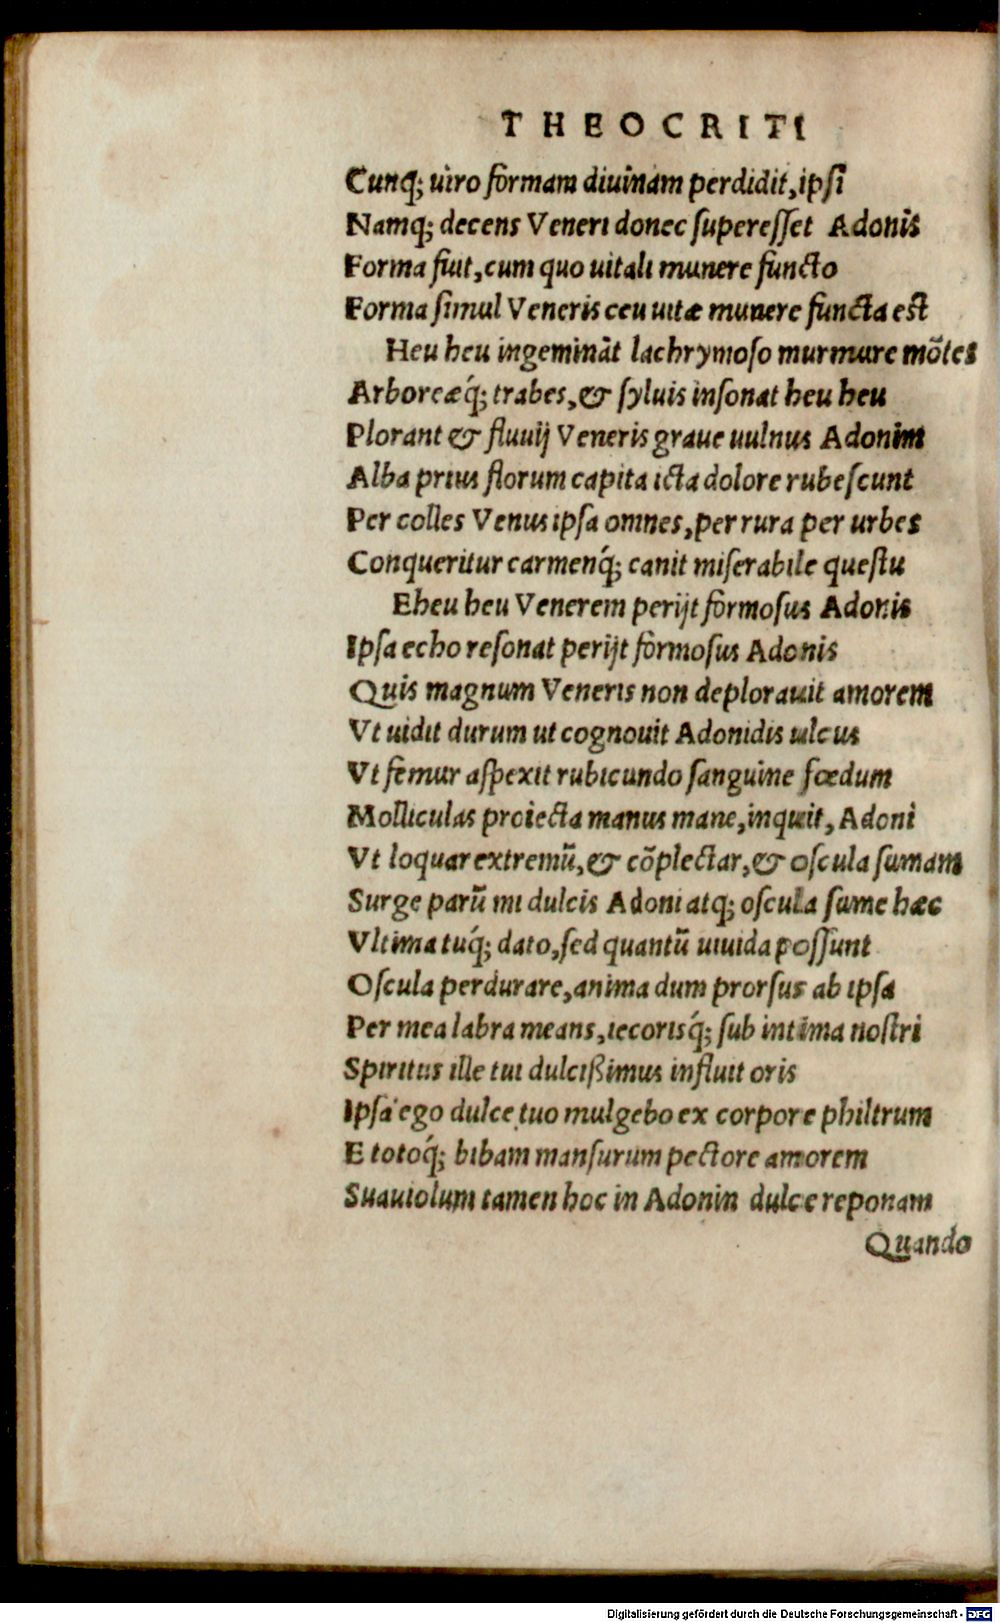 THEOCRITI
Cunq; uiro formam diuinam perdidit, ipsi
Namq; decens Veneri donec superesset Adonis
Forma fuit, cum quo uitali munere functo
Forma simul Veneris ceu uitæ munere functa est
Heu heu ingeminãt lachrymoso murmure mõtes
Arboreæq́; trabes, & syluis insonat heu heu
Plorant & fluuij Veneris graue uulnus Adonim
Alba prius florum capita icta dolore rubescunt
Per colles Venus ipsa omnes, per rura per urbes
Conqueritur carmenq́; canit miserabile questu
Eheu heu Venerem perijt formosus Adonis
Ipsa echo resonat perijt formosus Adonis
Quis magnum Veneris non deplorauit amorem
Vt uidit durum ut cognouit Adonidis ulcus
Vt femur aspexit rubicundo sanguine fœdum
Molliculas proiecta manus mane, inquit, Adoni
Vt loquar extremũ, & cõplectar, & oscula sumam
Surge parũ mi dulcis Adoni atq; oscula sume hæc
Vltima tuq́; dato, sed quantũ uiuida possunt
Oscula perdurare, anima dum prorsus ab ipsa
Per mea labra means, iecorisq́; sub intima nostri
Spiritus ille tui dulcißimus influit oris
Ipsa ego dulce tuo mulgebo ex corpore philtrum
E totoq́; bibam mansurum pectore amorem
Suauiolum tamen hoc in Adonin dulce reponam
Quando
Digitalisierung gefördert durch die Deutsche Forschungsgemeinschaft - DFG